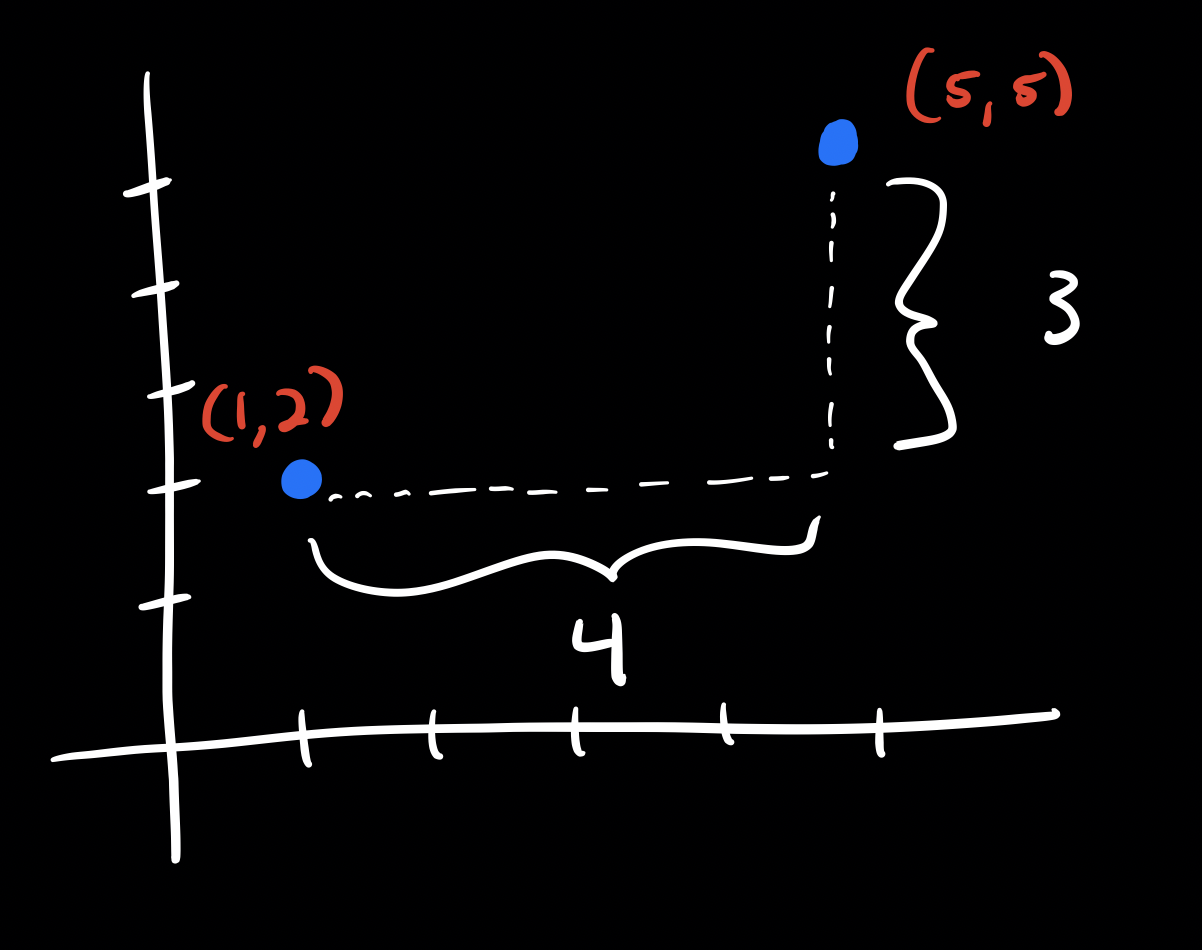 (5,5)
3
(1,2)
4